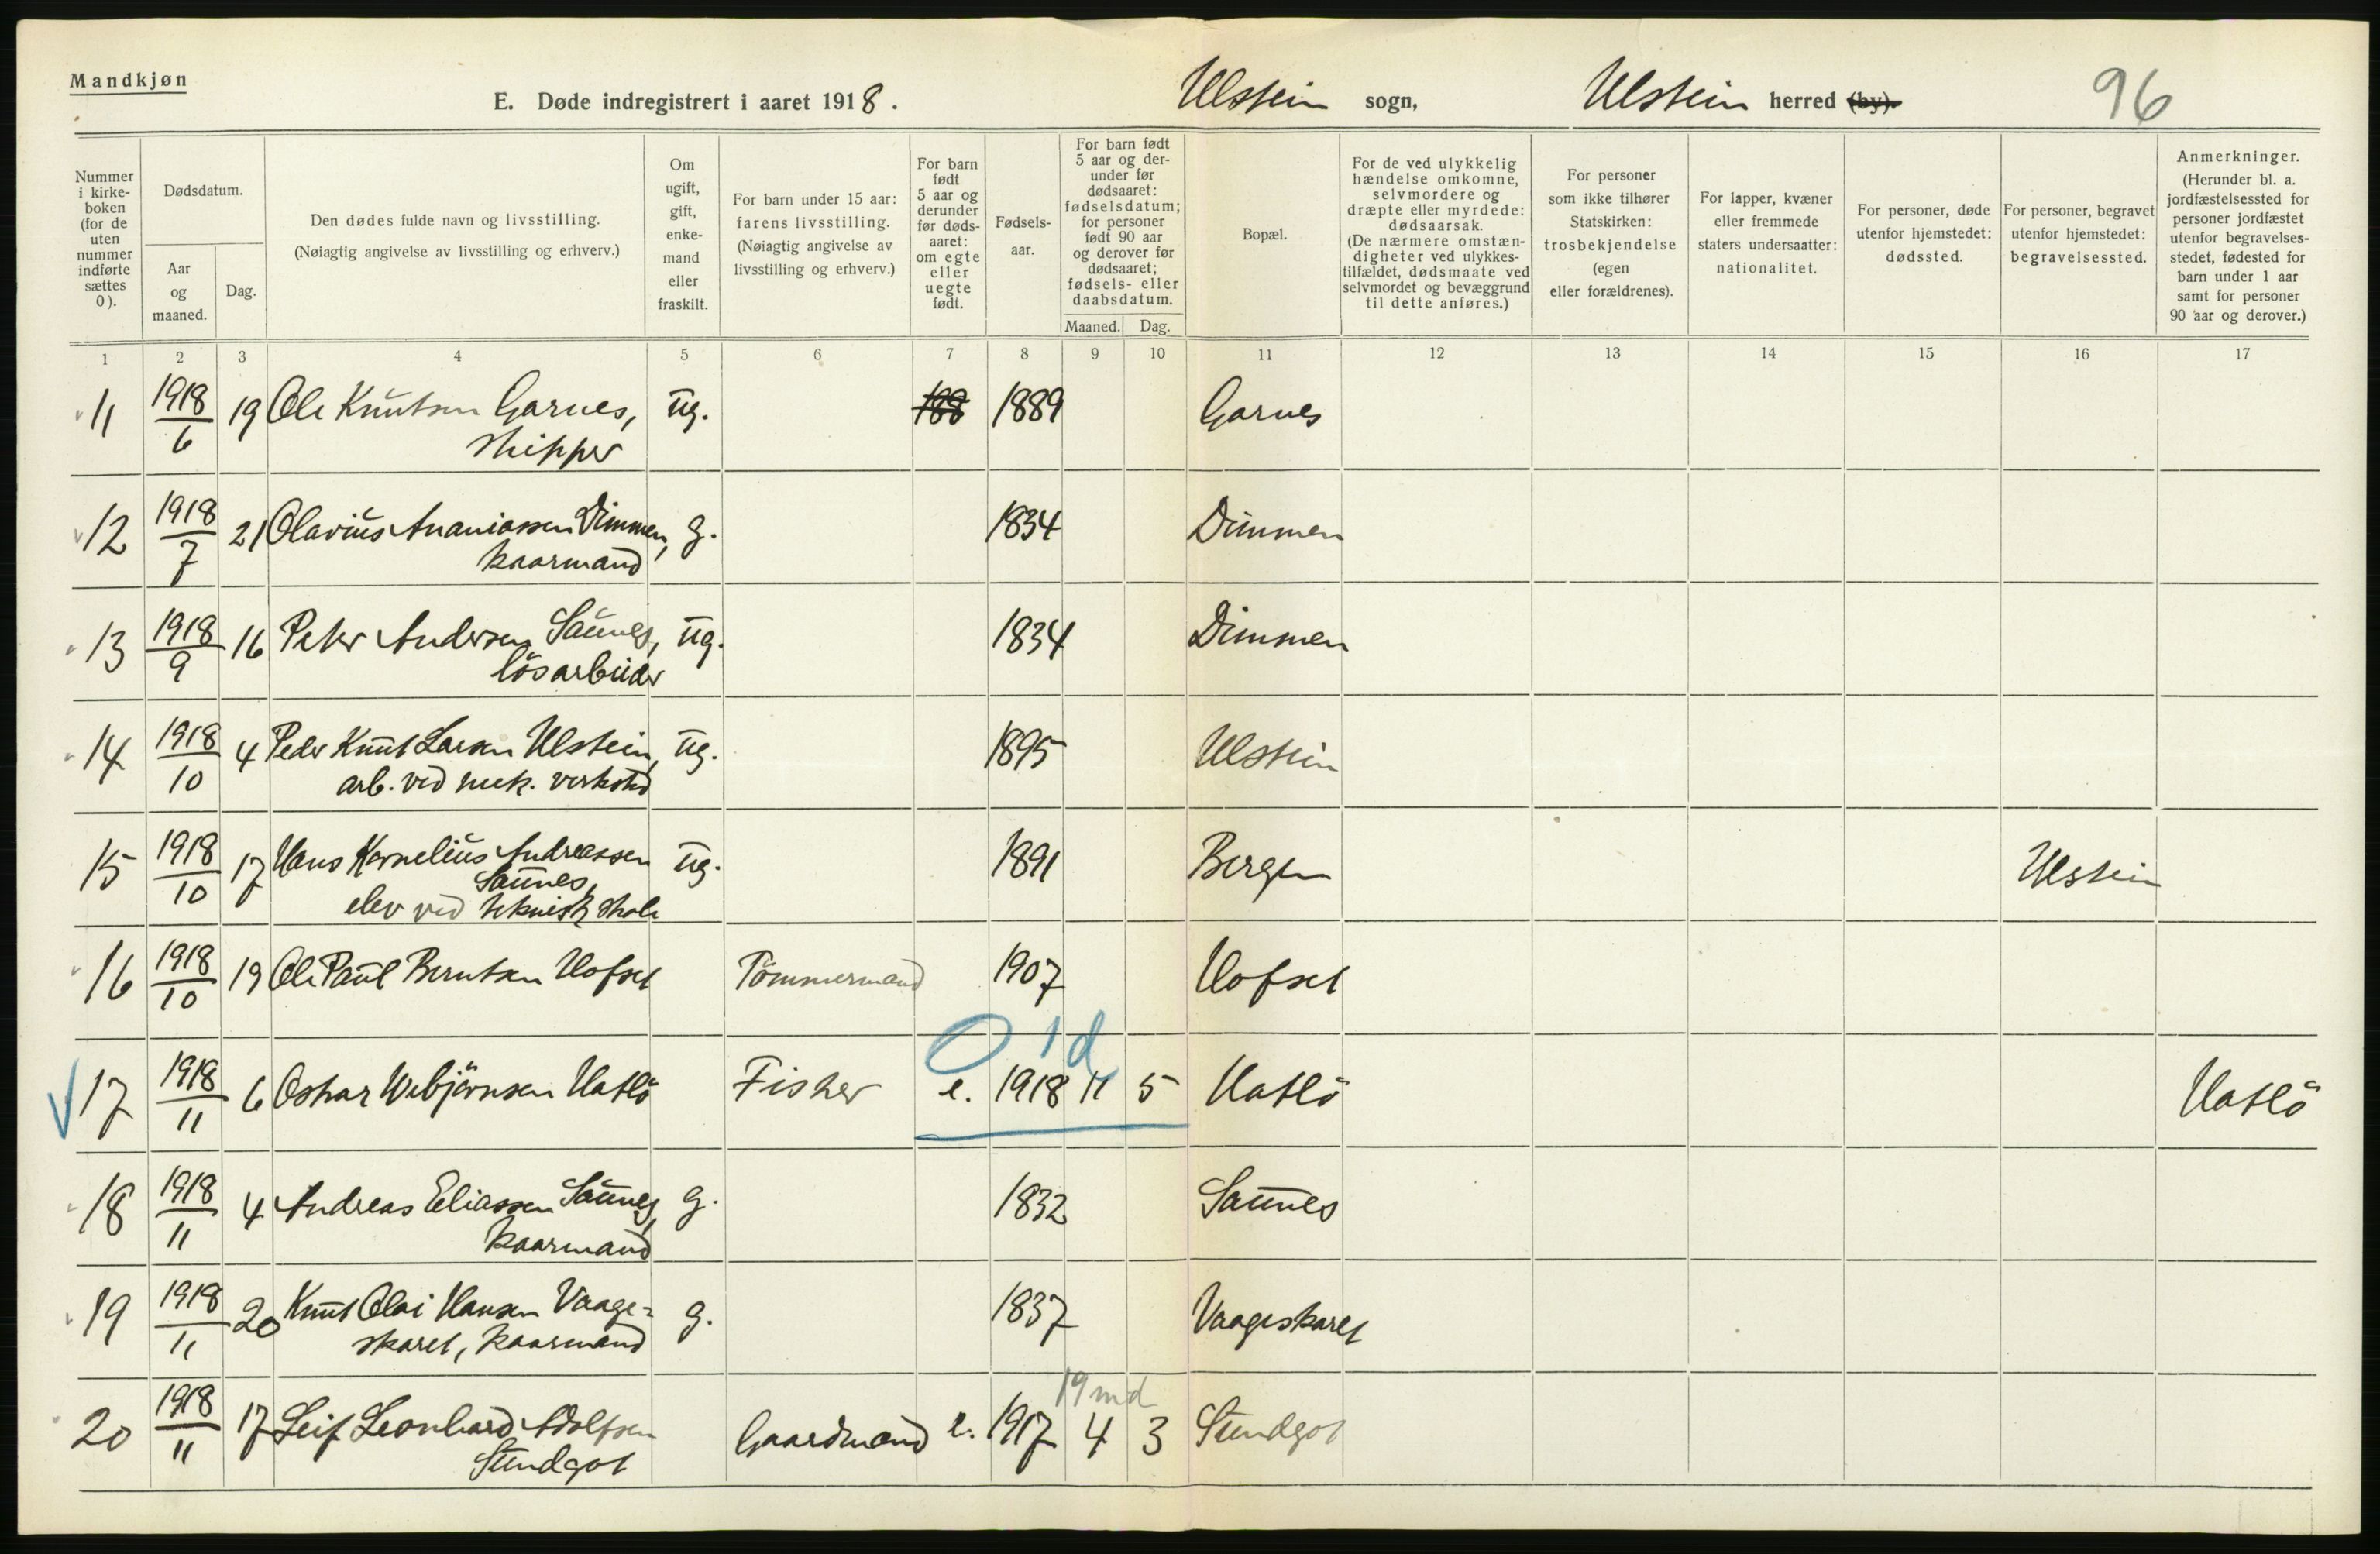 Mandkjøn
E. Døde indregistrert i aaret 1918. Ulstein sogn, Ulstein herred (by). 96
Nummer i kirke-boken (for de uten nummer indførte sættes 0).
Dødsdatum.
Aar og maaned.
Dag.
Den dødes fulde navn og livsstilling.
(Nøiagtig angivelse av livsstilling og erhverv.)
Om ugift, gift, enke-mand eller fraskilt.
For barn under 15 aar: farens livsstilling. (Nøiagtig angivelse av livsstilling og erhverv.)
For barn født 5 aar og derunder før døds-aaret: om egte eller uegte født.
Fødsels-aar.
For barn født 5 aar og der-under før dødsaaret: fødselsdatum; for personer født 90 aar og derover før dødsaaret; fødsels- eller daabsdatum.
Maaned. Dag.
Bopæl.
For de ved ulykkelig hændelse omkomne, selvmordere og dræpte eller myrdede: dødsaarsak. (De nærmere omstæn-digheter ved ulykkes-tilfældet, dødsmaate ved selvmordet og bevæggrund til dette anføres.)
For personer som ikke tilhører Statskirken: trosbekjendelse (egen eller forældrenes).
For lapper, kvæner eller fremmede staters undersaatter: nationalitet.
For personer, døde utenfor hjemstedet: dødssted.
For personer, begravet utenfor hjemstedet: begravelsessted.
Anmerkninger. (Herunder bl. a. jordfæstelsessted for personer jordfæstet utenfor begravelses-stedet, fødested for barn under 1 aar samt for personer 90 aar og derover.)
1 2 3 4 5 6 7 8 9 10 11 12 13 14 15 16 17
11 1918 19 Ole Knutsen Garnes, ug. 188 1889 Garnes
6 skipper
12 1918 21 Olavius Ananiassen Dimmen, g. 1834 Dimmen
7 kaarmand
13 1918 16 Peter Andersen Saunes, ug. 1834 Dimmen
9 løsarbeider
14 1918 4 Peder Knut Larsen Ulstein, ug. 1895 Ulstein
10 arb. ved mek. verksted
15 1918 17 Hans Kornelius Andreassen ug. 1891 Bergen Ulstein
10 Saunes,
elev ved teknisk skole
16 1918 19 Ole Paul Berntsen Hofset Tömmermand 1907 Hofset
10
0 1 d
17 1918 6 Oskar Vebjörnsen Hatlö Fisker e. 1918 11 5 Hatlö Hatlö
11
18 1918 4 Andreas Eliassen Saunes, g. 1832 Saunes
11 kaarmand
19 1918 20 Knut Olai Hansen Vaage= g. 1837 Vaageskaret
11 skaret, kaarmand
19 md
20 1918 17 Leif Leonhard Adolfsen Gaardmand e. 1917 4 3 Sundgot
11 Sundgot